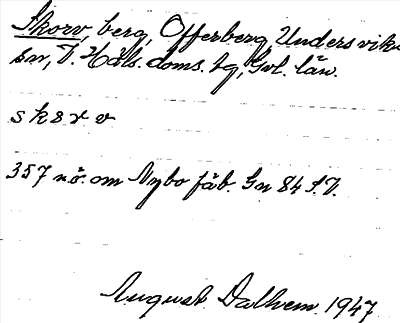 Skorv, berg, Offerberg, Undersviks
sn, V. Häls. doms. hg, Gvl. län.
skɔrv
357 nö. om Nybo fäb. Gn 84 S.V.
August Dalhem. 1947